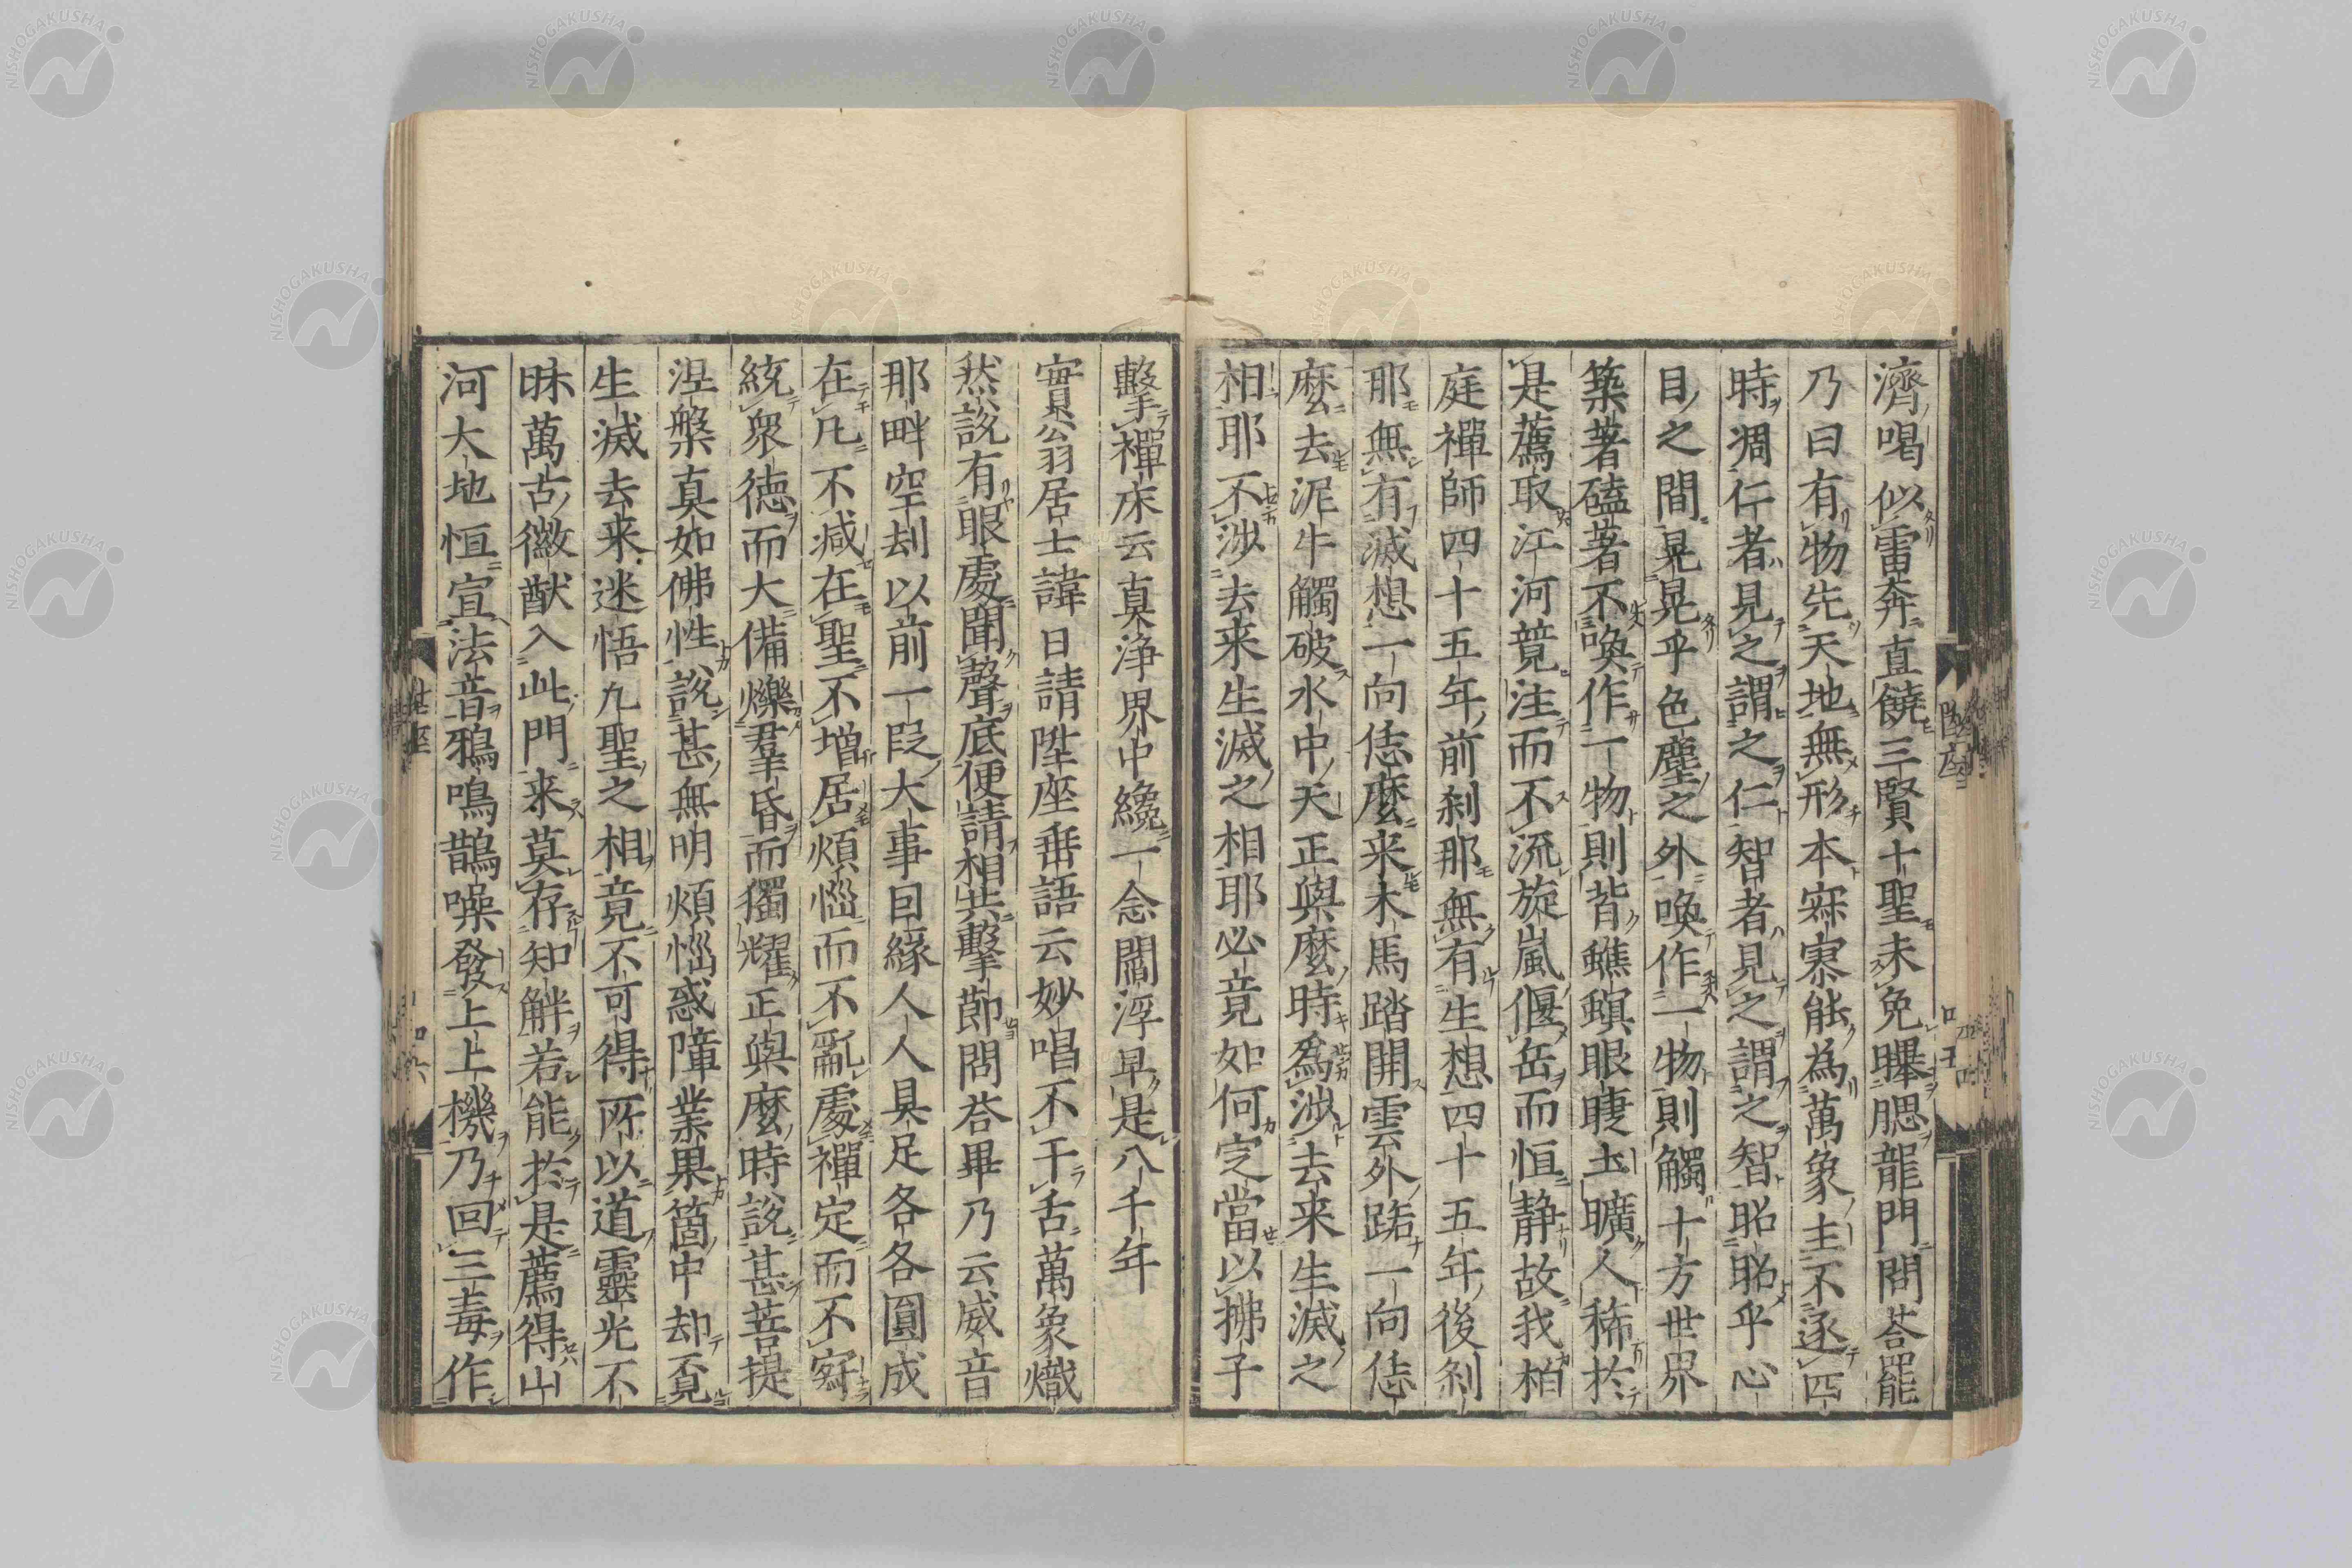 濟喝似雷奔直饒三賢十聖未免曝腮龍門問荅罷
乃曰有物先天地無形本寂寥能為萬象主不逐四
時凋仁者見之謂之仁智者見之謂之智昭昭乎心
目之間晃晃乎色塵之外喚作一物則觸十方世界
築著磕著不喚作一物則背蟭螟眼睫土曠人稀於
是薦取江河競注而不流旋嵐偃岳而恒静故我栢
庭禪師四十五年前刹那無有生想四十五年後刹
那無有滅想一向恁麼来木馬踏開雲外路一向恁
麼去泥牛觸破水中天正與麼時為涉去来生滅之
相耶不涉去来生滅之相耶必竟如何定當以拂子
擊禪床云真淨界中纔一念閻浮早是八千年
實翁居士諱日請陞座垂語云妙唱不干舌萬象熾
然説有眼處聞聲底便請相共擊節問荅畢乃云威音
那畔空劫以前一段大事因緣人人具足各各圓成
在凡不减在聖不增居煩惱而不亂處禪定而不寂
統衆徳而大備爍羣昏而獨耀正與麼時説甚菩提
涅槃真如佛性説甚無明煩惱惑障業果箇中却覓
生滅去来迷悟凡聖之相竟不可得所以道靈光不
昧萬古徽猷入此門来莫存知解若能於是薦得山
河大地恒宣法音鴉鳴鵲噪發上上機乃回三毒作
陞座